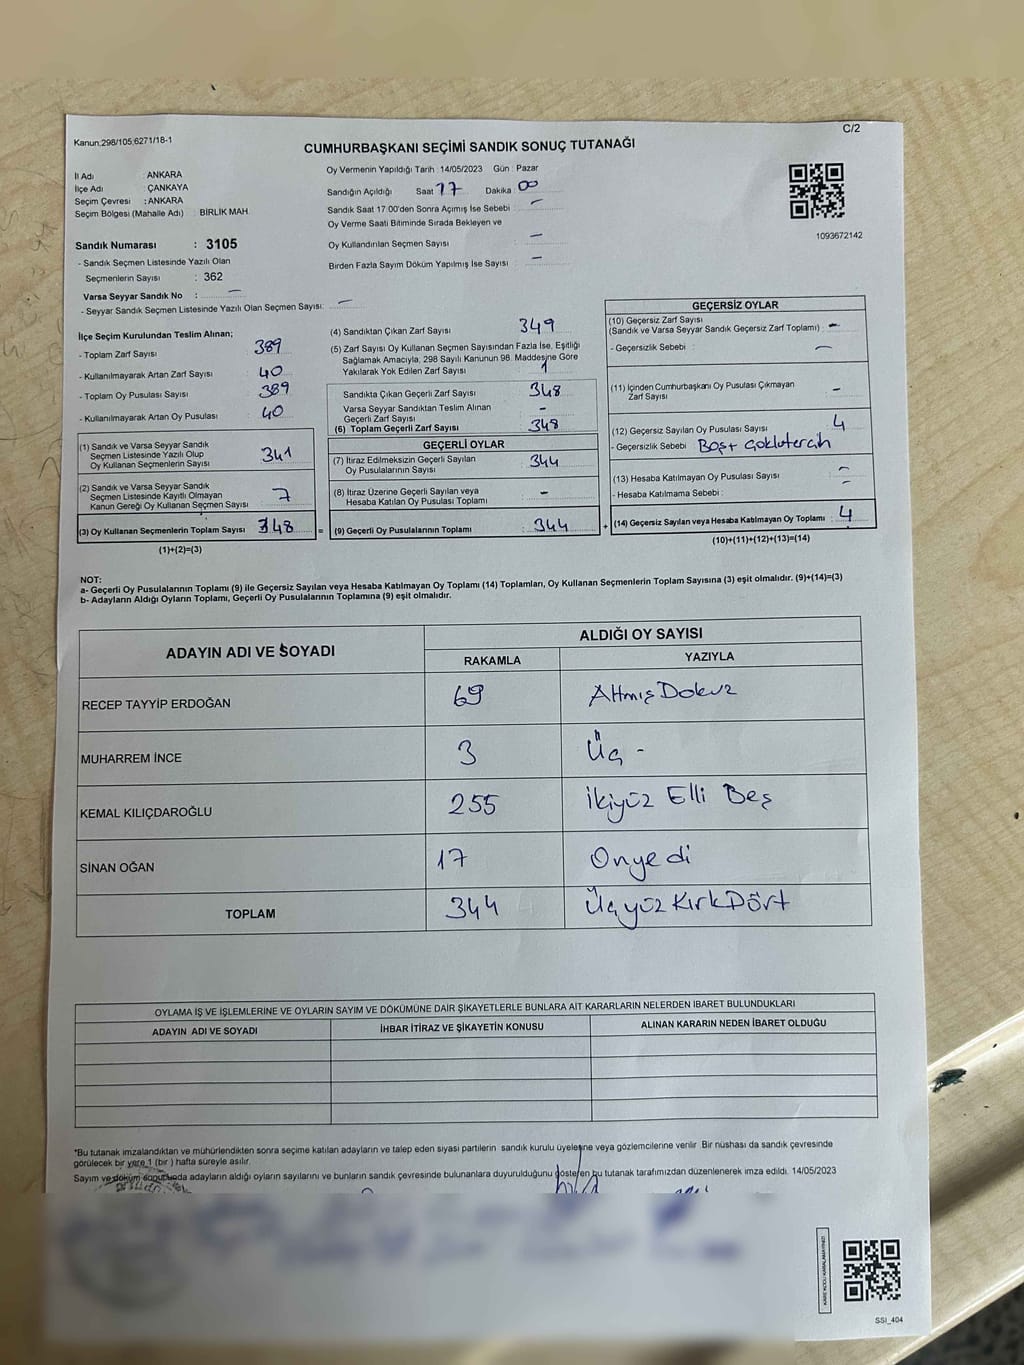 Kanun;298/105;6271/18-1
C/2
CUMHURBAŞKANI SEÇİMİ SANDIK SONUÇ TUTANAĞI
İl Adı : ANKARA
İlçe Adı : ÇANKAYA
Seçim Çevresi : ANKARA
Seçim Bölgesi (Mahalle Adı) : BİRLİK MAH.
Sandık Numarası : 3105
- Sandık Seçmen Listesinde Yazılı Olan
Seçmenlerin Sayısı : 362
Varsa Seyyar Sandık No : –
- Seyyar Sandık Seçmen Listesinde Yazılı Olan Seçmen Sayısı: –
Oy Vermenin Yapıldığı Tarih : 14/05/2023 Gün : Pazar
Sandığın Açıldığı Saat 17 Dakika : 00
Sandık Saat 17:00'den Sonra Açımış İse Sebebi : –
Oy Verme Saati Bitiminde Sırada Bekleyen ve
Oy Kullandırılan Seçmen Sayısı : –
Birden Fazla Sayım Döküm Yapılmış İse Sayısı : –
1093672142
İlçe Seçim Kurulundan Teslim Alınan;
- Toplam Zarf Sayısı : 389
- Kullanılmayarak Artan Zarf Sayısı : 40
- Toplam Oy Pusulası Sayısı : 389
- Kullanılmayarak Artan Oy Pusulası : 40
(1) Sandık ve Varsa Seyyar Sandık
Seçmen Listesinde Yazılı Olup
Oy Kullanan Seçmenlerin Sayısı : 341
(2) Sandık ve Varsa Seyyar Sandık
Seçmen Listesinde Kayıtlı Olmayan
Kanun Gereği Oy Kullanan Seçmen Sayısı : 7
(3) Oy Kullanan Seçmenlerin Toplam Sayısı : 348
(1)+(2)=(3)
(4) Sandıktan Çıkan Zarf Sayısı : 349
(5) Zarf Sayısı Oy Kullanan Seçmen Sayısından Fazla İse, Eşitliği
Sağlamak Amacıyla, 298 Sayılı Kanunun 98. Maddesine Göre
Yakılarak Yok Edilen Zarf Sayısı : 1
Sandıkta Çıkan Geçerli Zarf Sayısı : 348
Varsa Seyyar Sandıktan Teslim Alınan
Geçerli Zarf Sayısı : –
(6) Toplam Geçerli Zarf Sayısı : 348
GEÇERLİ OYLAR
(7) İtiraz Edilmeksizin Geçerli Sayılan
Oy Pusulalarının Sayısı : 344
(8) İtiraz Üzerine Geçerli Sayılan veya
Hesaba Katılan Oy Pusulası Toplamı : –
= (9) Geçerli Oy Pusulalarının Toplamı : 344
GEÇERSİZ OYLAR
(10) Geçersiz Zarf Sayısı
(Sandık ve Varsa Seyyar Sandık Geçersiz Zarf Toplamı) : –
- Geçersizlik Sebebi : –
(11) İçinden Cumhurbaşkanı Oy Pusulası Çıkmayan
Zarf Sayısı : –
(12) Geçersiz Sayılan Oy Pusulası Sayısı : 4
- Geçersizlik Sebebi : Boş+ çoklutercih
(13) Hesaba Katılmayan Oy Pusulası Sayısı : –
- Hesaba Katılmama Sebebi : –
+ (14) Geçersiz Sayılan veya Hesaba Katılmayan Oy Toplamı : 4
(10)+(11)+(12)+(13)=(14)
NOT:
a- Geçerli Oy Pusulalarının Toplamı (9) ile Geçersiz Sayılan veya Hesaba Katılmayan Oy Toplamı (14) Toplamları, Oy Kullanan Seçmenlerin Toplam Sayısına (3) eşit olmalıdır. (9)+(14)=(3)
b- Adayların Aldığı Oyların Toplamı, Geçerli Oy Pusulalarının Toplamına (9) eşit olmalıdır.
ADAYIN ADI VE SOYADI
ALDIĞI OY SAYISI
RAKAMLA YAZIYLA
RECEP TAYYİP ERDOĞAN 69 Altmış Dokuz
MUHARREM İNCE 3 Üç -
KEMAL KILIÇDAROĞLU 255 İkiyüz Elli Beş
SİNAN OĞAN 17 Onyedi
TOPLAM 344 Üçyüz Kırk Dört
OYLAMA İŞ VE İŞLEMLERİNE VE OYLARIN SAYIM VE DÖKÜMÜNE DAİR ŞİKAYETLERLE BUNLARA AİT KARARLARIN NELERDEN İBARET BULUNDUKLARI
ADAYIN ADI VE SOYADI İHBAR İTİRAZ VE ŞİKAYETİN KONUSU ALINAN KARARIN NEDEN İBARET OLDUĞU
*Bu tutanak imzalandıktan ve mühürlendikten sonra seçime katılan adayların ve talep eden siyasi partilerin sandık kurulu üyelerine veya gözlemcilerine verilir. Bir nüshası da sandık çevresinde
görülecek bir yere 1 (bir ) hafta süreyle asılır.
Sayım ve döküm sonucunda adayların aldığı oyların sayılarını ve bunların sandık çevresinde bulunanlara duyurulduğunu gösteren bu tutanak tarafımızdan düzenlenerek imza edildi. 14/05/2023
SSI_404